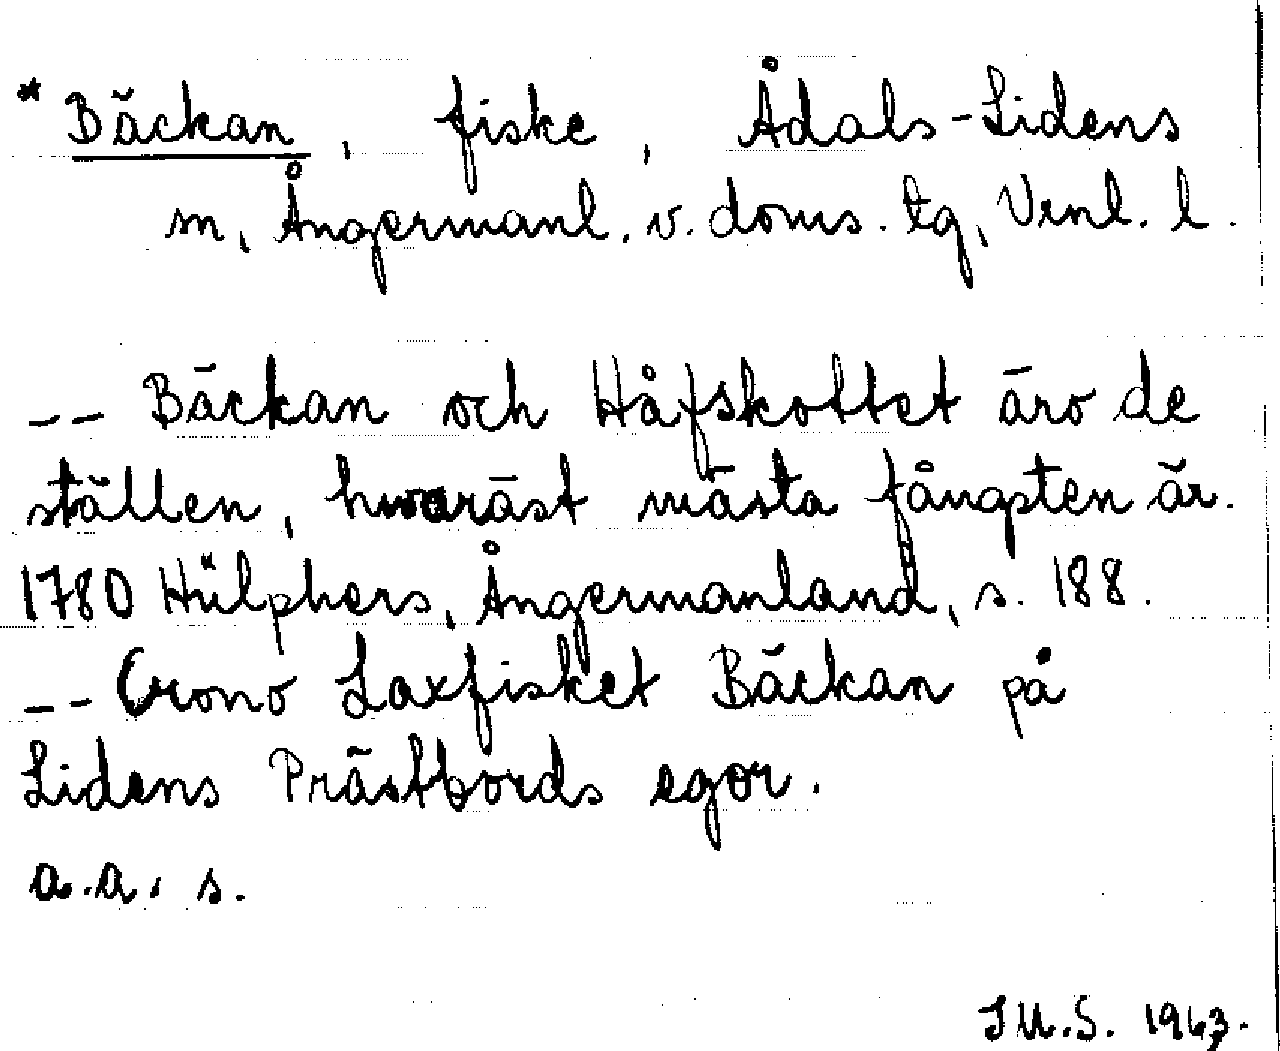 * Bäckan, fiske, Ådals-Lidens
sn, Ångermanl. v. doms. tg, Vnl. l.
-- Bäckan och Håfskottet äro de
ställen, hwaräst mästa fångsten är.
1780 Hülphers, Ångermanland, s. 188.
-- Crono Laxfisket Bäckan på
Lidens Prästbords egor.
a.a. s.
I M.S. 1963.